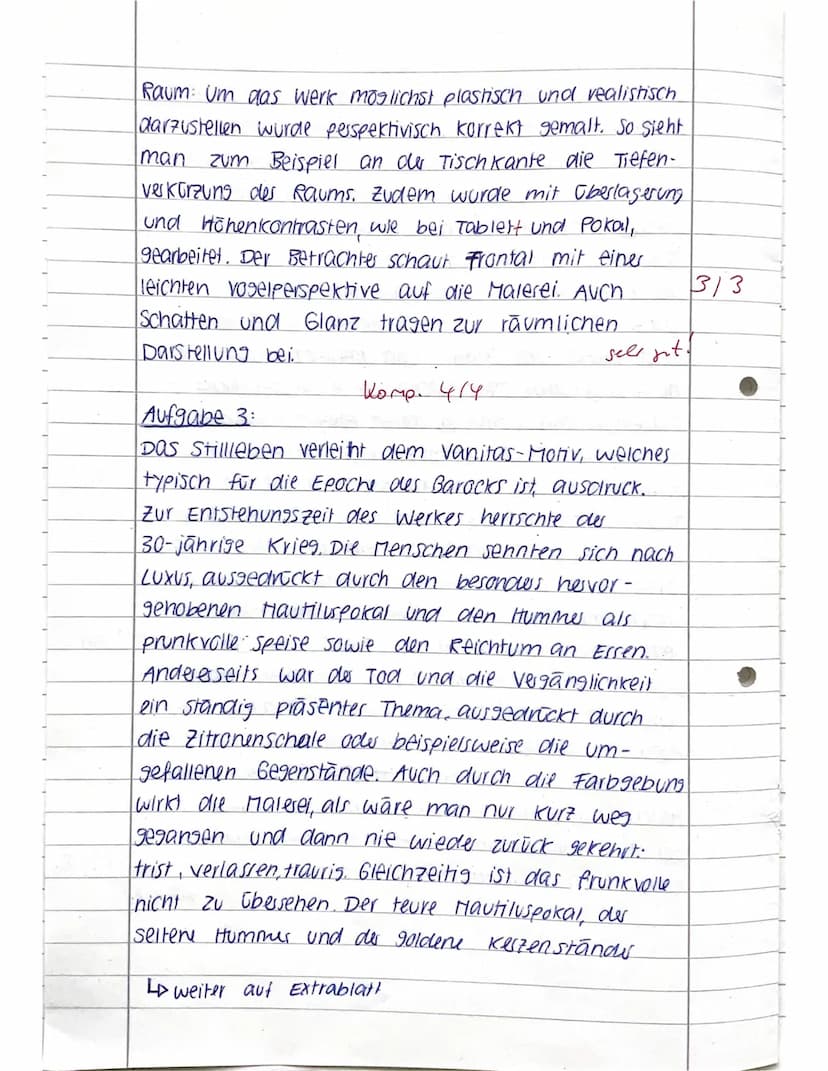 Raum: Um das Werk möglichst plastisch und realistisch
darzustellen wurde perspektivisch korrekt gemalt. So sieht
man zum Beispiel an der Tischkante die Tiefen-
verkürzung des Raums. Zudem wurde mit Überlagerung
und Höhenkontrasten, wie bei Tablett und Pokal,
gearbeitet. Der Betrachter schaut frontal mit einer
leichten Vogelperspektive auf die Malerei. Auch 3/3
Schatten und Glanz tragen zur räumlichen
Darstellung bei. sehr gut!
Komp. 4/4
Aufgabe 3:
Das Stillleben verleiht dem Vanitas-Motiv, welches
typisch für die Epoche des Barocks ist, ausdruck.
Zur Entstehungszeit des Werkes herrschte der
30-jährige Krieg. Die Menschen sehnten sich nach
Luxus, ausgedrückt durch den besonders hervor-
gehobenen Nautiluspokal und den Hummer als
prunkvolle Speise sowie den Reichtum an Essen.
Andererseits war der Tod und die Vergänglichkeit
ein ständig präsentes Thema, ausgedrückt durch
die Zitronenschale oder beispielsweise die um-
gefallenen Gegenstände. Auch durch die Farbgebung
wirkt die Malerei, als wäre man nur kurz weg
gegangen und dann nie wieder zurück gekehrt:
trist, verlassen, traurig. Gleichzeitig ist das Prunkvolle
nicht zu übersehen. Der teure Nautiluspokal, der
seltene Hummer und der goldene Kerzenständer
↳ weiter auf Extrablatt